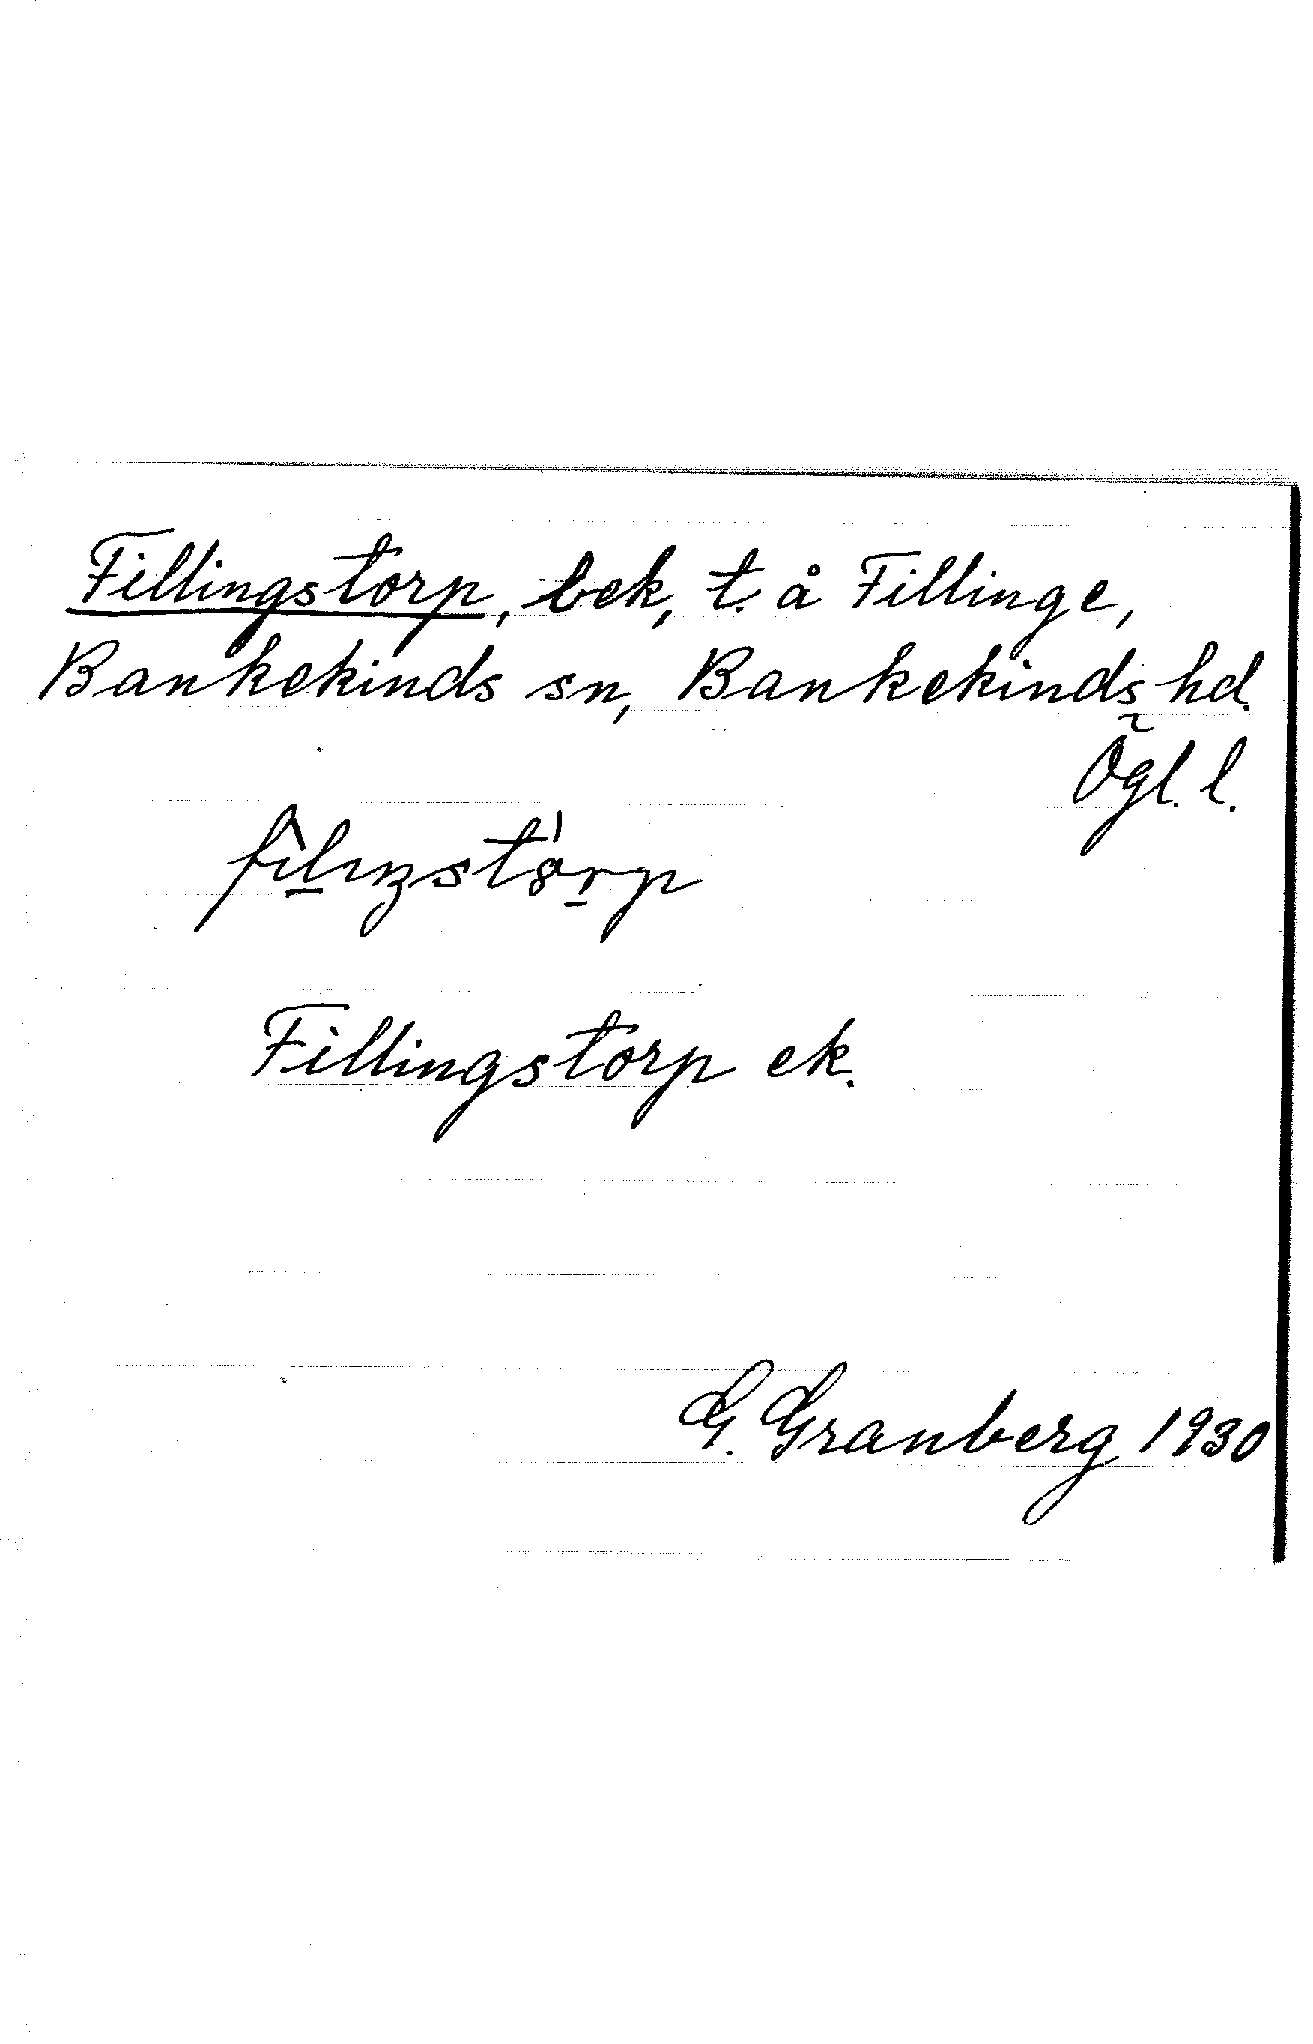 Fillingstorp, bek, t. å Fillinge,
Bankekinds sn, Bankekinds hd.
Ögl. l.
Fillingstorp ek.
G. Granberg 1930